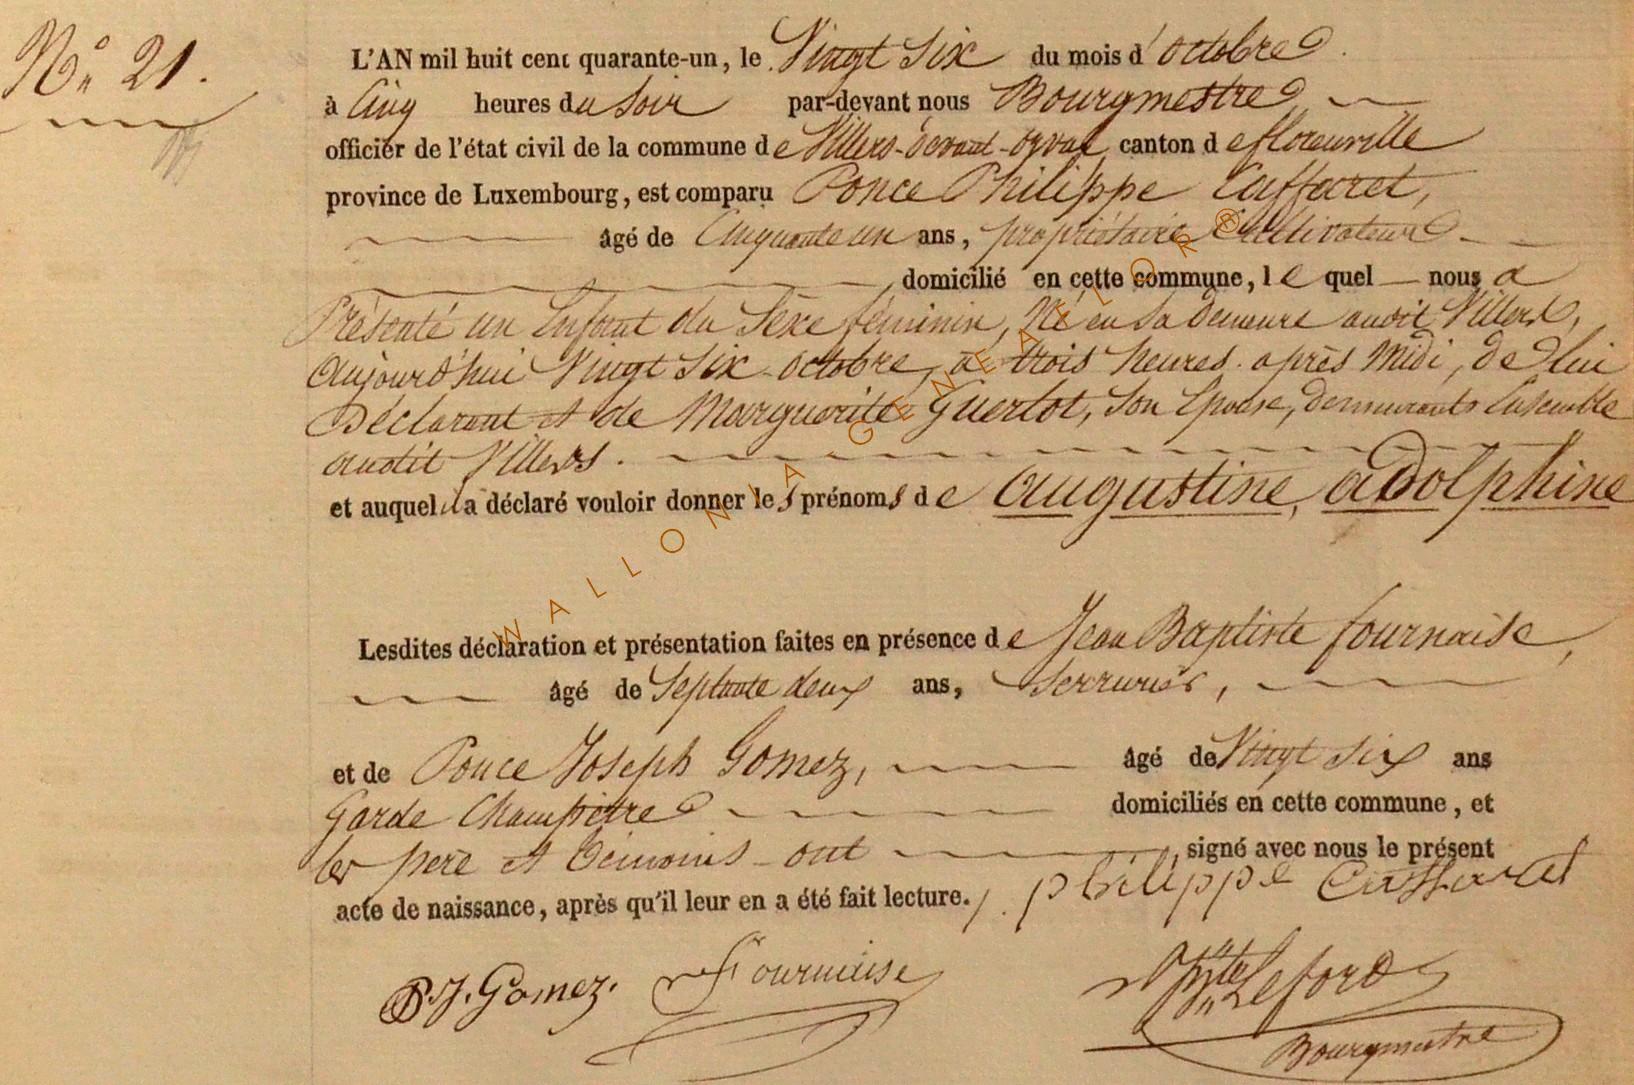 N° 21.
L'AN mil huit cent quarante-un, le Vingt Six du mois d'octobre.
à Cinq heures du Soir par-devant nous Bourgmestre
officier de l'état civil de la commune de Villers-devant-orval canton de florenville
province de Luxembourg, est comparu Ponce Philippe Caffaret,
âgé de Cinquante un ans, propriétaire Cultivateur
domicilié en cette commune, lequel nous a
Présenté un Enfant du Sexe féminin, Né en Sa Demeure audit Villers,
Aujourd'hui Vingt Six octobre, à trois heures après Midi, de lui
Déclarant et de Marguerite Guerlot, Son Epouse, demeurants Ensemble
audit Villers.
et auquel il a déclaré vouloir donner les prénoms de augustine, adolphine
Lesdites déclaration et présentation faites en présence de Jean Baptiste fournaise,
âgé de Septante deux ans, Serrurier,
et de Ponce Joseph Gomez, âgé de Vingt Six ans
Garde Champêtre domiciliés en cette commune, et
les père et témoins ont signé avec nous le présent
acte de naissance, après qu'il leur en a été fait lecture. philippe Caffaret
P. J. Gomez. Fournaise Leford
Bourgmestre
WALLONIA GENEALOR®